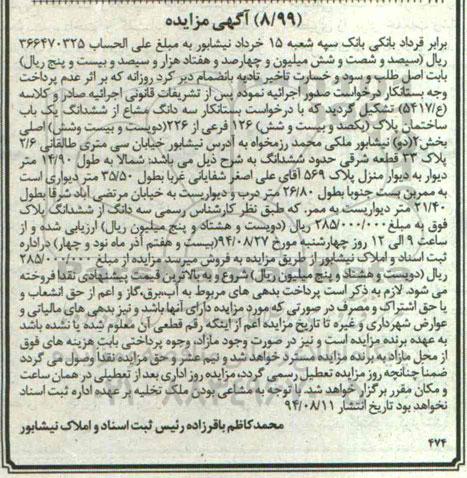 (۸/۹۹) آگهی مزایده
برابر قرداد بانکی بانک سپه شعبه ۱۵ خرداد نیشابور به مبلغ علی الحساب ۳۶۶۴۷۰۳۲۵
ریال (سیصد و شصت و شش میلیون و چهارصد و هفتاد هزار و سیصد و بیست و پنج ریال)
بابت اصل طلب و سود و خسارت تاخیر تادیه بانضمام دیر کرد روزانه که بر اثر عدم پرداخت
وجه بستانکار درخواست صدور اجرائیه نموده پس از تشریفات قانونی اجرائیه صادر و کلاسه
(ع/۵۴۱۷) تشکیل گردید که با درخواست بستانکار سه دانگ مشاع از ششدانگ یک باب
ساختمان پلاک (یکصد و بیست و شش) ۱۲۶ فرعی از ۲۲۶(دویست و بیست وشش) اصلی
بخش۲(دو) نیشابور ملکی محمد رزمخواه به آدرس نیشابور خیابان سی متری طالقانی ۲/۶
پلاک ۲۳ قطعه شرقی حدود ششدانگ به شرح ذیل می باشد: شمالا به طول ۱۴/۹۰ متر
دیوار به دیوار منزل پلاک ۵۶۹ آقای علی اصغر شفایائی غربا بطول ۳۵/۵۰ متر دیواری است
به ممربن بست جنوبا بطول ۲۶/۸۰ متر درب و دیواریست به خیابان مرتضی آباد شرقا بطول
۲۱/۴۰ متر دیواریست به ممر. که طبق نظر کارشناس رسمی سه دانگ از ششدانگ پلاک
فوق به مبلغ ۲۸۵/۰۰۰/۰۰۰ ریال (دویست و هشتاد و پنج میلیون ریال) ارزیابی شده و از
ساعت ۹ الی ۱۲ روز چهارشنبه مورخ ۹۴/۰۸/۲۷(بیست و هفتم آذر ماه نود و چهار) دراداره
ثبت اسناد و املاک نیشابور از طریق مزایده به فروش میرسد مزایده از مبلغ ۲۸۵/۰۰۰/۰۰۰
ریال (دویست و هشتاد و پنج میلیون ریال) شروع و به بالاترین قیمت پیشنهادی نقدا فروخته
می شود. لازم به ذکر است پرداخت بدهی های مربوط به آب،برق،گاز و اعم از حق انشعاب و
یا حق اشتراک و مصرف در صورتی که مورد مزایده دارای آنها باشد و نیز بدهی های مالیاتی و
عوارض شهرداری و غیره تا تاریخ مزایده اعم از اینکه رقم قطعی آن معلوم شده یا نشده باشد
به عهده برنده مزایده است و نیز در صورت وجود مازاد، وجوه پرداختی بابت هزینه های فوق
از محل مازاد به برنده مزایده مسترد خواهد شد و نیم عشر و حق مزایده نقدا وصول می گردد
ضمنا چنانچه روز مزایده تعطیل رسمی گردد، مزایده روز اداری بعد از تعطیلی در همان ساعت
و مکان مقرر برگزار خواهد شد. با توجه به مشاعی بودن ملک تخلیه بر عهده اداره ثبت اسناد
نخواهد بود تاریخ انتشار ۹۴/۰۸/۱۱
محمدکاظم باقرزاده رئیس ثبت اسناد و املاک نیشابور
۴۷۴